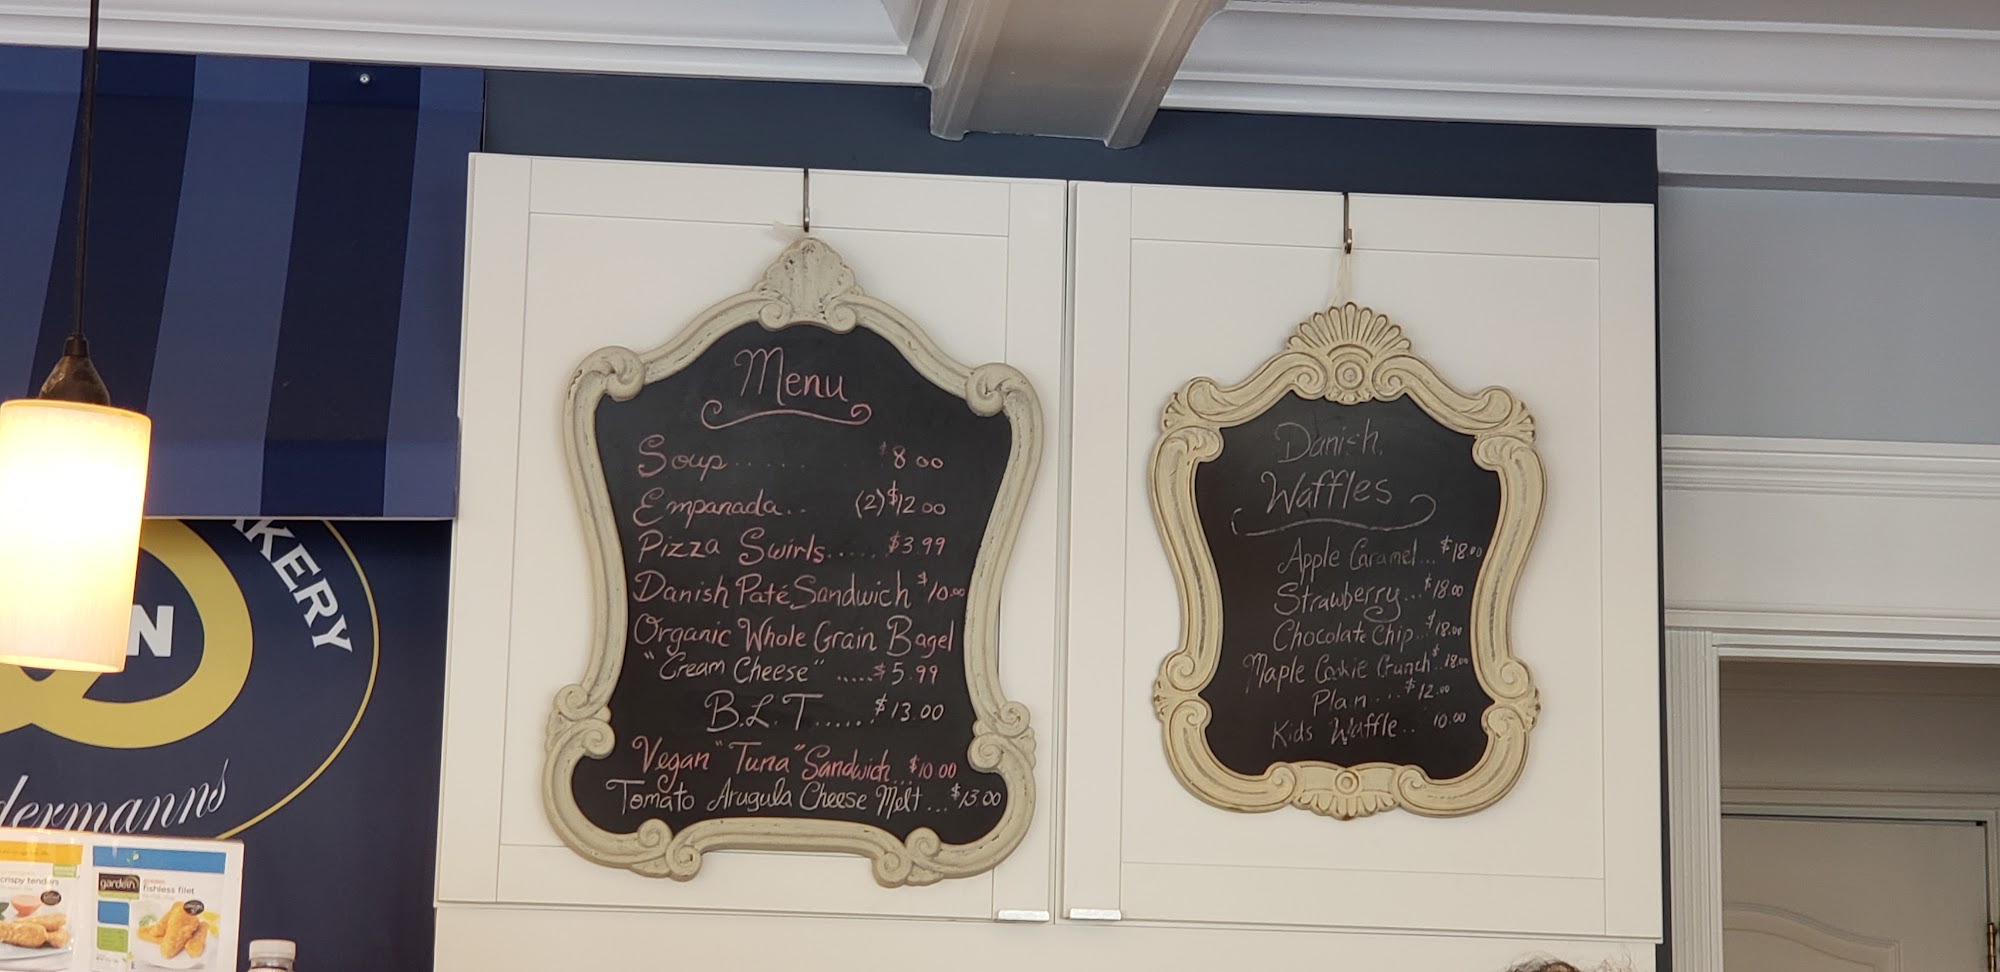 Menu
Soup...... $8.00
Empanada.. (2) $12.00
Pizza Swirls...... $3.99
Danish Paté Sandwich $10.00
Organic Whole Grain Bagel
"Cream Cheese" .....$5.99
B.L.T...... $13.00
Vegan "Tuna" Sandwich...$10.00
Tomato Arugula Cheese Melt...$13.00
Danish
Waffles
Apple Caramel...$18.00
Strawberry...$18.00
Chocolate Chip..$18.00
Maple Cookie Crunch..$18.00
Plain....$12.00
Kids Waffle.. 10.00
AKERY
N
dermanns
crispy tenders
gardein
fishless filet